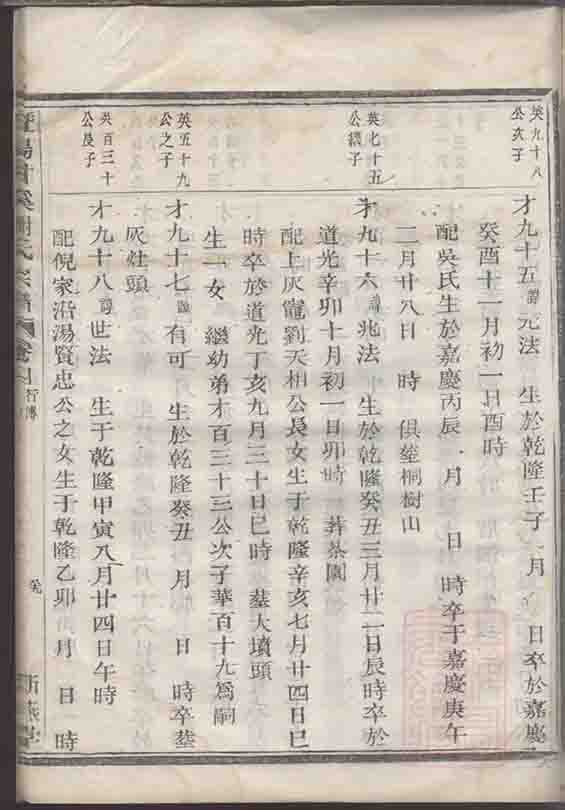 英九十八
公次子
才九十五 諱 元法 生於乾隆壬子 月 日卒於嘉慶
癸酉十一月初一日酉時
配吳氏生於嘉慶丙辰 月 日 時卒于嘉慶庚午
二月廿八日 時 俱塟桐樹山
英七十五
公繼子
才九十六 諱 兆法 生於乾隆癸丑三月廿二日辰時卒於
道光辛卯十月初一日卯時 葬茶園
配上灰竈劉天相公長女生于乾隆辛亥七月廿四日巳
時卒於道光丁亥九月三十日巳時 墓大墳頭
生一女 繼幼弟才百三十三公次子華百十九爲嗣
英五十九
公之子
才九十七 諱 有可 生於乾隆癸丑 月 日 時卒墓
灰灶頭
英百三十
公長子
才九十八 諱 世法 生于乾隆甲寅八月廿四日午時
配倪家沿湯賢忠公之女生于乾隆乙卯 月 日 時
暨陽 溪 氏宗譜 卷 行傳